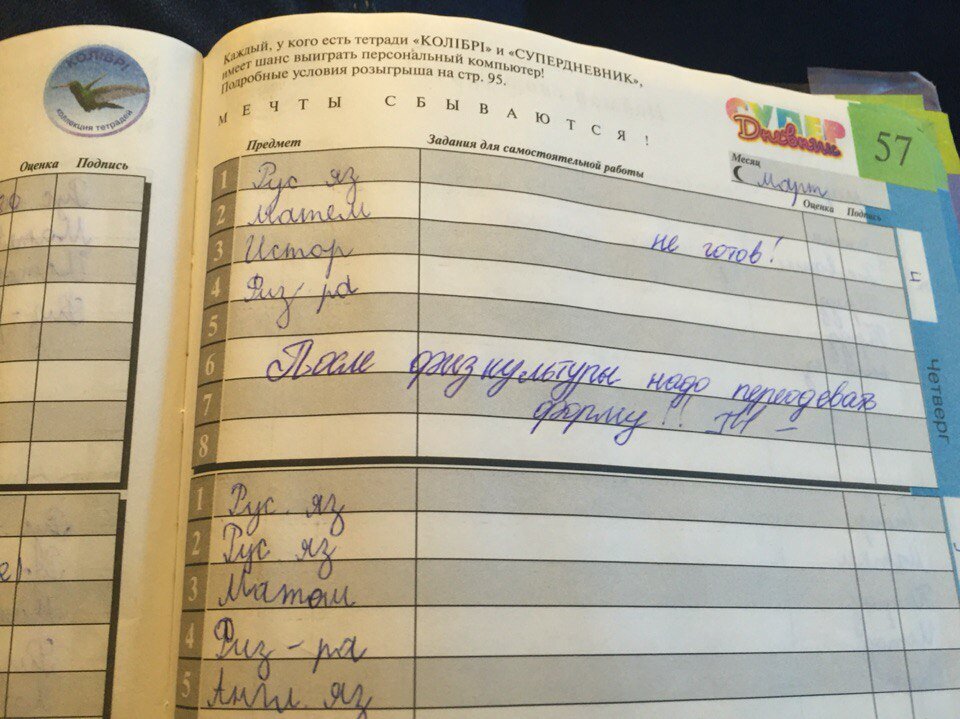 КОЛІБРІ
коллекция тетрадей
Оценка Подпись
Каждый, у кого есть тетради «КОЛІБРІ» и «СУПЕРДНЕВНИК»,
имеет шанс выиграть персональный компьютер!
Подробные условия розыгрыша на стр. 95.
МЕЧТЫ СБЫВАЮТСЯ!
СУПЕР
Дневник
57
Месяц
Март
Предмет Задания для самостоятельной работы Оценка Подпись
1 Рус яз
2 Матем
3 Истор не готов!
4 Физ-ра
5
6 После физкультуры надо переодевать
7 форму!!
8
Четверг
1 Рус. яз
2 Рус яз
3 Матем
4 Физ-ра
5 Англ. яз